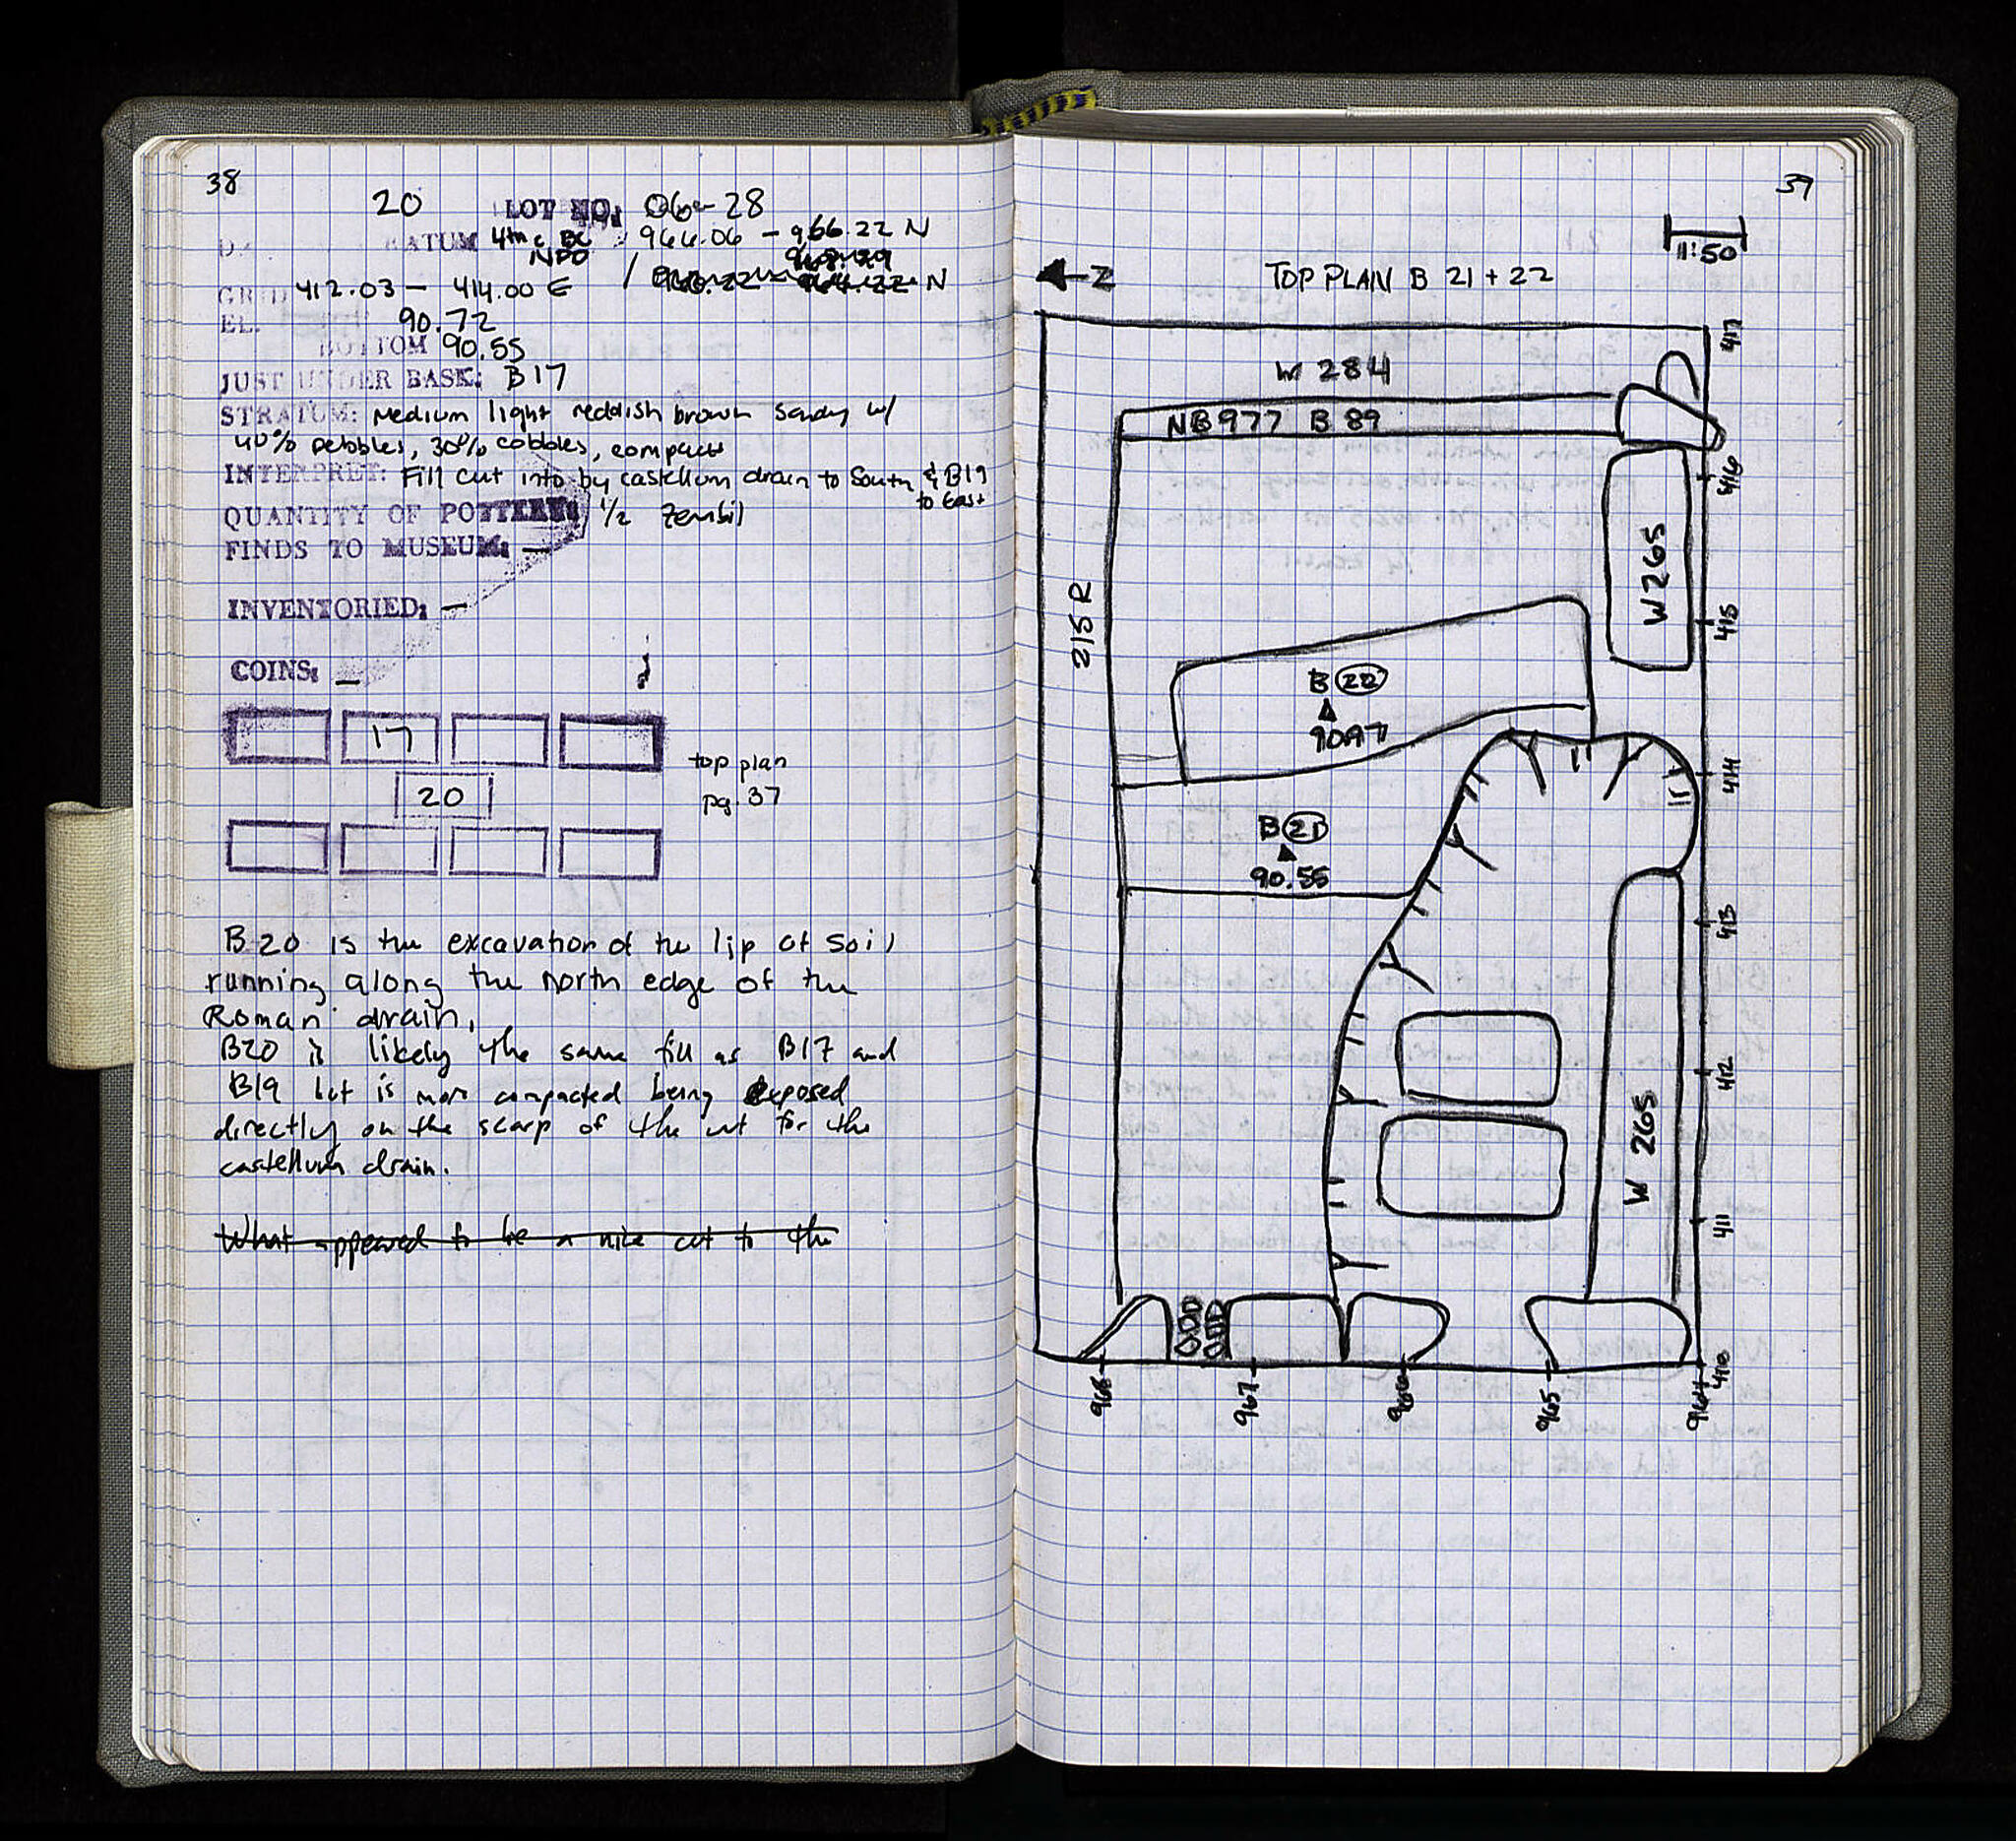 38
20 LOT NO. 06-28
DA RATUM 4th c BC 966.06 - 966.22 N
NPD
GRID 412.03 - 414.00 E / N
EL. 90.72
BOTTOM 90.55
JUST UNDER BASK: B17
STRATUM: Medium light reddish brown sandy w/
40% pebbles, 30% cobbles, compact
INTERPRET: Fill cut into by castellum drain to South & B19
to East
QUANTITY OF POTTERY: 1/2 zembil
FINDS TO MUSEUM: —
INVENTORIED: —
COINS: —
17
20
top plan
pg. 37
B20 is the excavation of the lip of soil
running along the north edge of the
Roman drain.
B20 is likely the same fill as B17 and
B19 but is more compacted being exposed
directly on the scarp of the cut for the
castellum drain.
What appeared to be a nice cut to the
39
1:50
N
TOP PLAN B 21 + 22
417
W 284
NB977 B 89
416
W265
415
215 R
B 22
90.97
414
B 21
90.55
413
412
W 265
411
410
968
967
966
965
964